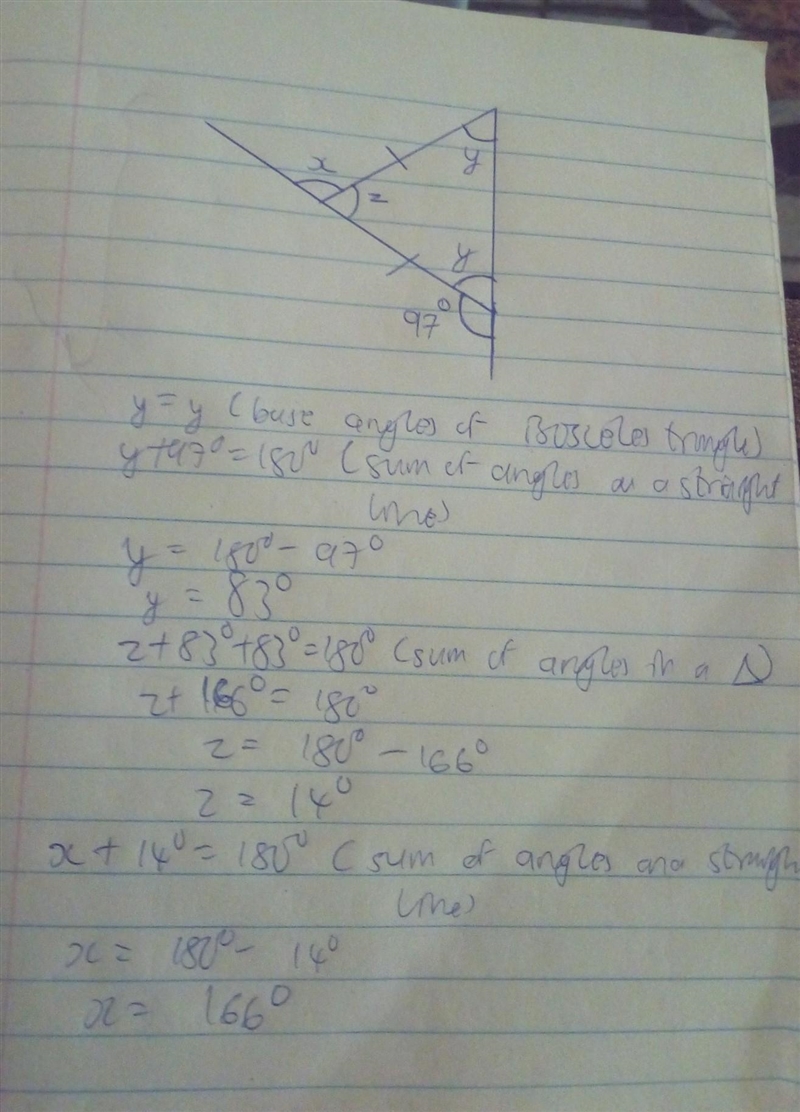 x
z
y
y
97⁰
y = y (base angles of isosceles triangle)
y+97⁰=180⁰ (sum of angles on a straight
line)
y = 180⁰ - 97⁰
y = 83⁰
z+83⁰+83⁰=180⁰ (sum of angles in a Δ)
z+ 166⁰ = 180⁰
z = 180⁰ - 166⁰
z = 14⁰
x + 14⁰ = 180⁰ (sum of angles on a straigh
line)
x = 180⁰ - 14⁰
x = 166⁰